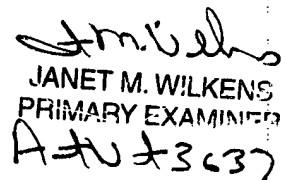 JANET M. WILKENS
PRIMARY EXAMINER
A+U +3637